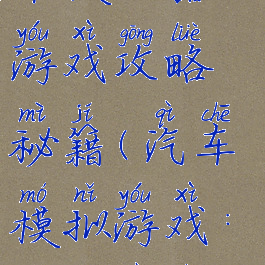 yóu xì gōng lüè
游戏攻略
mì jí qì chē
秘籍(汽车
mó nǐ yóu xì
模拟游戏: